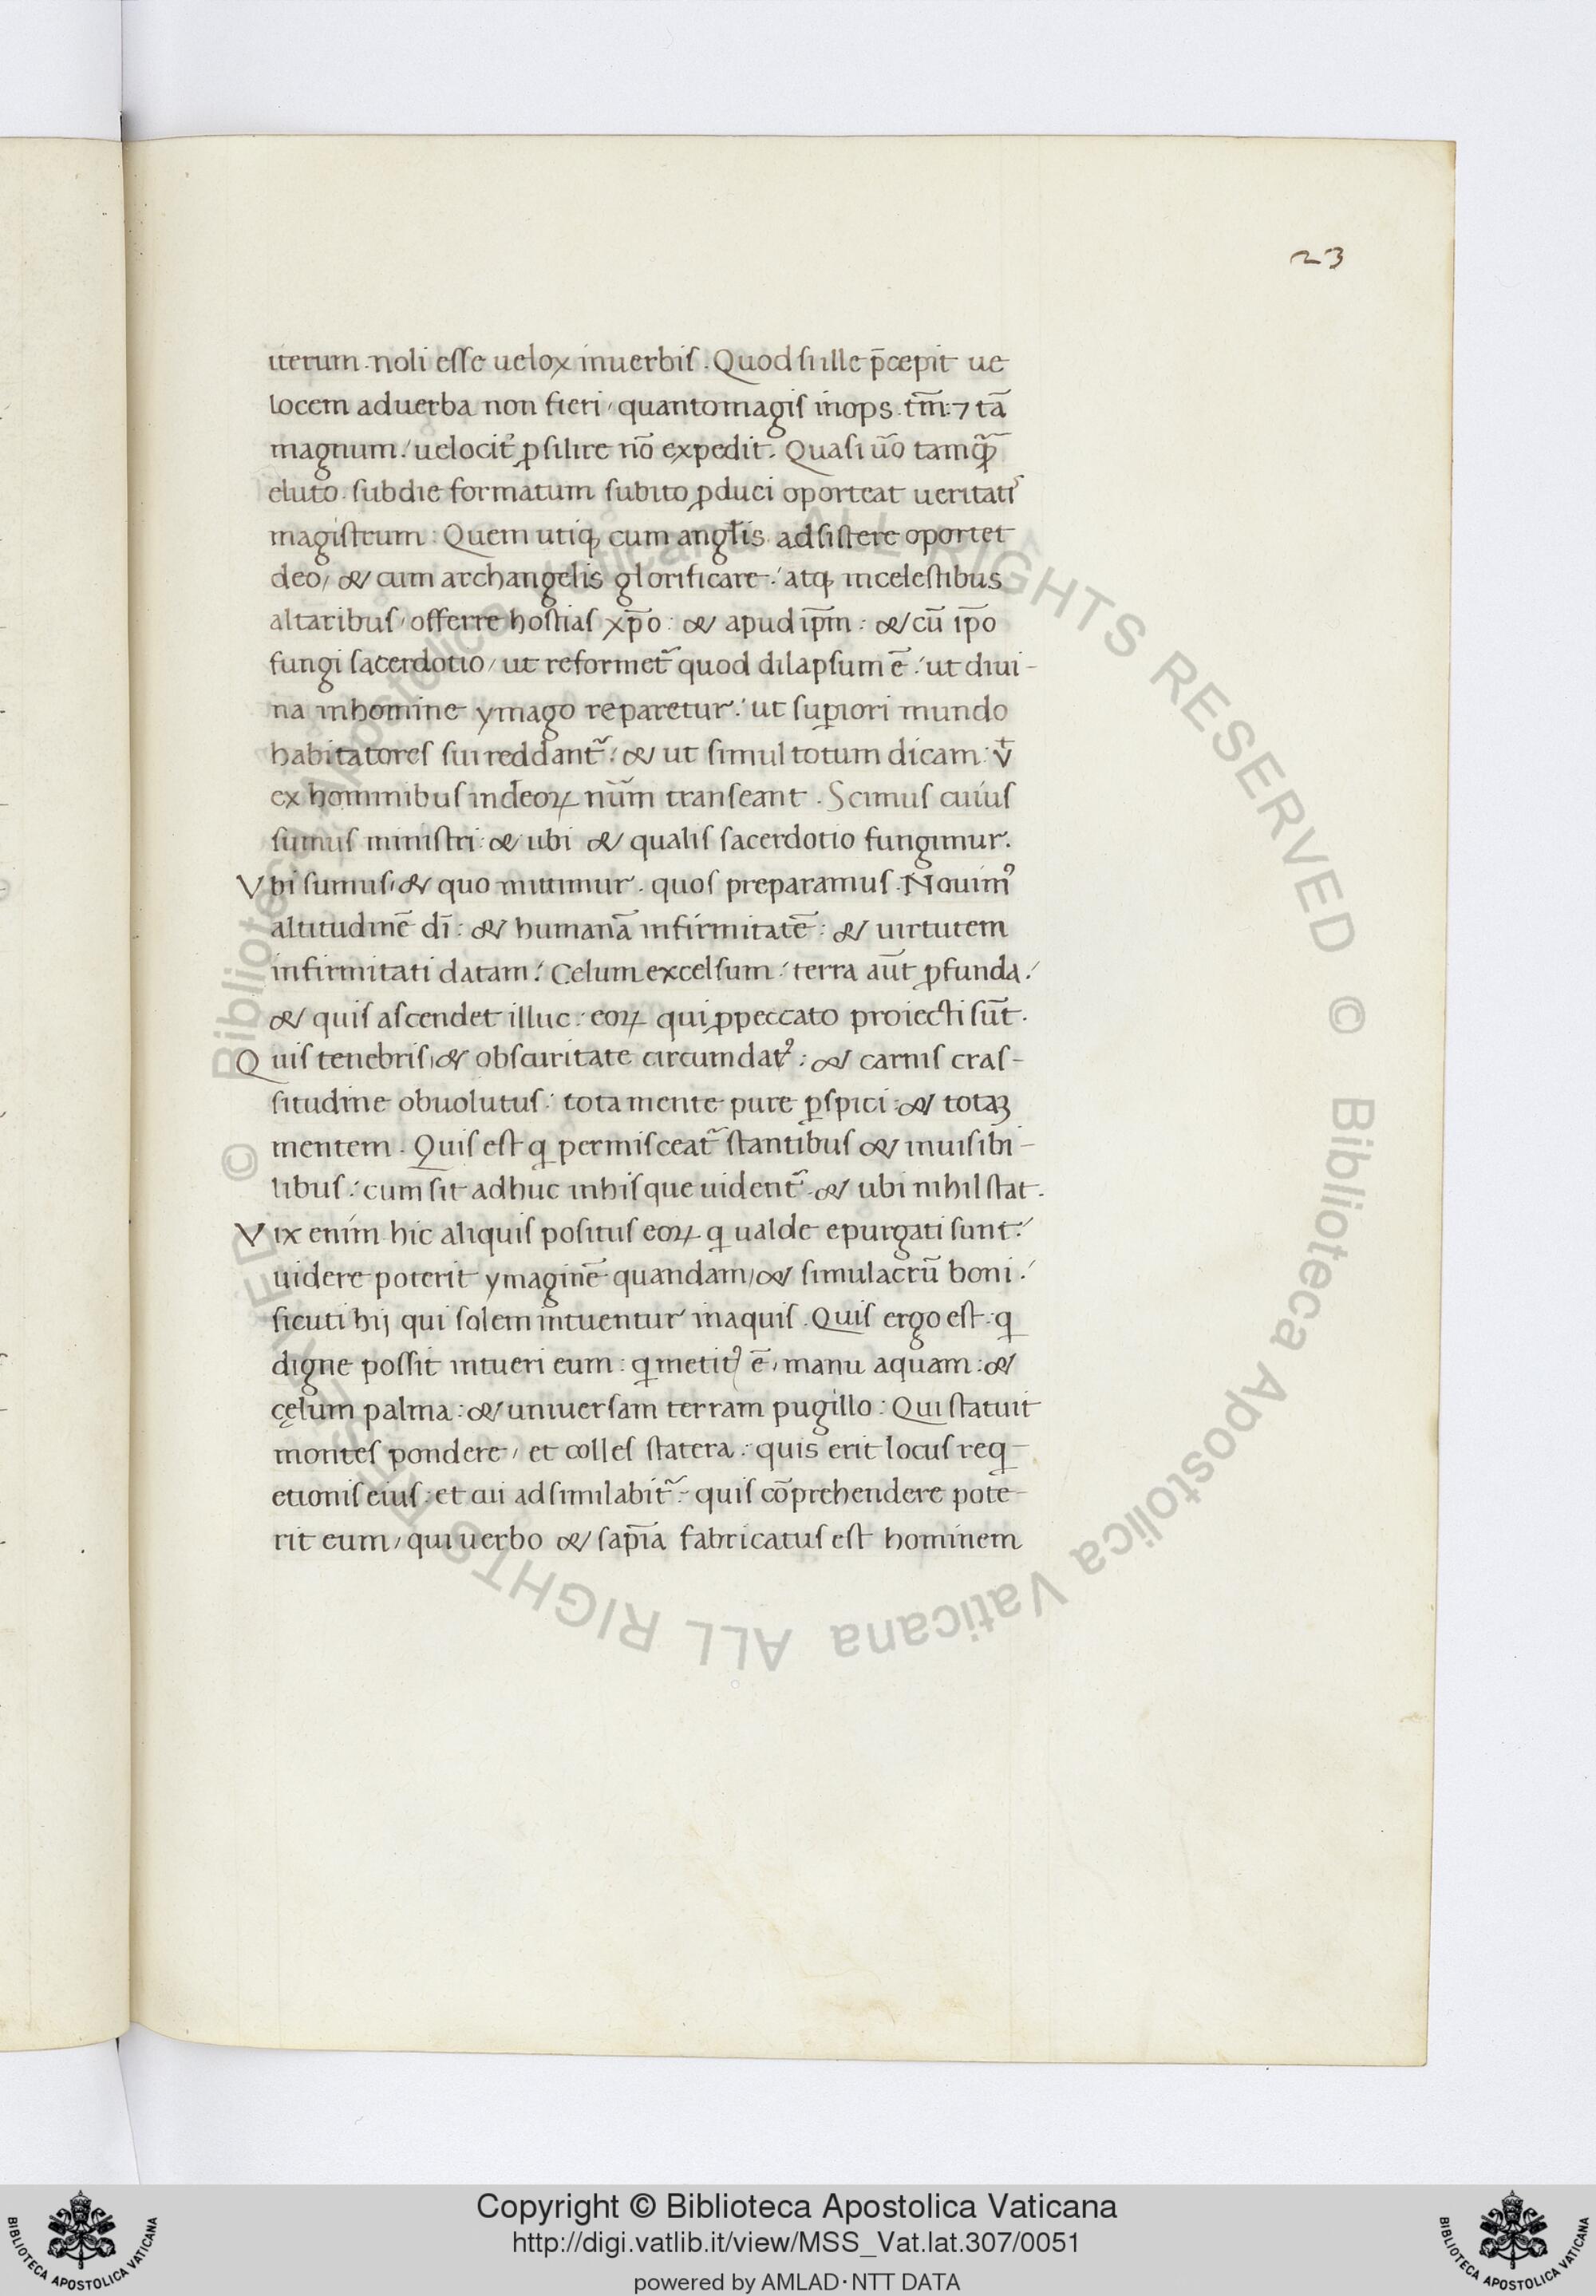 23
iterum. noli esse uelox inuerbis. Quod si ille p̄cepit ue
locem aduerba non fieri, quantomagis inops tm̄: ⁊ tā
magnum: uelocit᷑ ꝓsilire nō expedit. Quasi ū̃o tamꝙ̃
eluto. subdie formatum subito ꝓduci oporteat ueritati᷒
magistrum: Quem utiqꝫ cum angłis adsistere oportet
deo, & cum archangelis glorificare: atqꝫ incelestibus
altaribus, offerre hostias xp̄o: & apud ip̄m: & cū ip̄o
fungi sacerdotio, ut reformet᷑ quod dilapsum ē: ut diui-
na inhomine ymago reparetur: ut suꝑiori mundo
habitatores sui reddant᷑: & ut simul totum dicam: vᵗ
ex hominibus indeoꝝ nūm transeant. Scimus cuius
sumus ministri: & ubi & qualis sacerdotio fungimur.
Vbi sumus, & quo mittimur. quos preparamus. Nouimꝰ
altitudinē dī: & humanā infirmitatē: & uirtutem
infirmitati datam: Celum excelsum: terra aūt ꝓfunda:
& quis ascendet illuc: eoꝝ qui ꝓpeccato proiecti sūt.
Quis tenebris, & obscuritate circumdatꝰ: & carnis cras-
situdine obuolutus: tota mente pure ꝑspici: & totaꝫ
mentem. Quis est ꝗ permisceat᷑ stantibus & inuisibi-
libus: cum sit adhuc inhis que uident᷑. & ubi nihil stat.
Vix enim hic aliquis positus eoꝝ ꝗ ualde epurgati sunt:
uidere poterit ymaginē quandam, & simulacrū boni:
sicuti hij qui solem intuentur inaquis. Quis ergo est: ꝗ
digne possit intueri eum: ꝗ metitꝰ ē, manu aquam: &
cęlum palma: & uniuersam terram pugillo: Qui statuit
montes pondere, et colles statera: quis erit locus reꝗ-
etionis eius: et cui adsimilabit᷑: quis cōprehendere pote-
rit eum, qui uerbo & sapīa fabricatus est hominem
© Biblioteca Apostolica Vaticana ALL RIGHTS RESERVED © Biblioteca Apostolica Vaticana ALL RIGHTS RESERVED
Copyright © Biblioteca Apostolica Vaticana
http://digi.vatlib.it/view/MSS_Vat.lat.307/0051
powered by AMLAD·NTT DATA
BIBLIOTECA APOSTOLICA VATICANA
BIBLIOTECA APOSTOLICA VATICANA